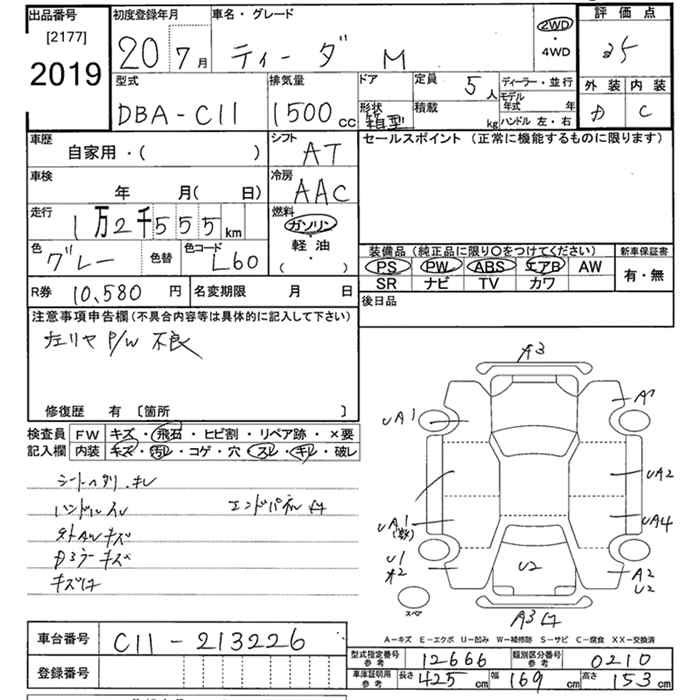 出品番号 [2177] 2019
初度登録年月 20年 7月
車名・グレード ティーダ M
2WD ・ 4WD
評価点
外装 内装 C
型式 DBA-C11
排気量 1500 cc
ドア 形状 箱型
定員 5人
積載 kg
ディーラー・並行
モデル年式 年
ハンドル 左・右
車歴 自家用・( )
シフト AT
セールスポイント (正常に機能するものに限ります)
車検 年 月( 日)
冷房 AAC
走行 1万2千555km
燃料 ガソリン・軽油 ( ・ )
色 グレー 色替 色コード L60
装備品 (純正品に限り〇をつけてください) 新車保証書
PS PW ABS エアB AW 有・無
SR ナビ TV カワ
R券 10,580 円 名変期限 月 日
後日品
注意事項申告欄(不具合内容等は具体的に記入して下さい)
左リヤ P/W 不良
修復歴 有 [箇所 ]
検査員 FW キズ・飛石・ヒビ割・リペア跡・×要
記入欄 内装 キズ・汚レ・コゲ・穴・スレ・キレ・破レ
シートヘタリ・キレ
ハンドルスレ エンドパネル
キズ
キズ
A3
uA1
A1
uA2
uA1
uA4
U1
U2
A2
U2
スペア
A3
A-キズ E-エクボ U-凹み W-補修跡 S-サビ C-腐食 XX-交換済
車台番号 C11-213226
登録番号
型式指定番号 参考 12666 類別区分番号 参考 0210
車庫証明用 参考 長さ 425cm 幅 169cm 高さ 153cm